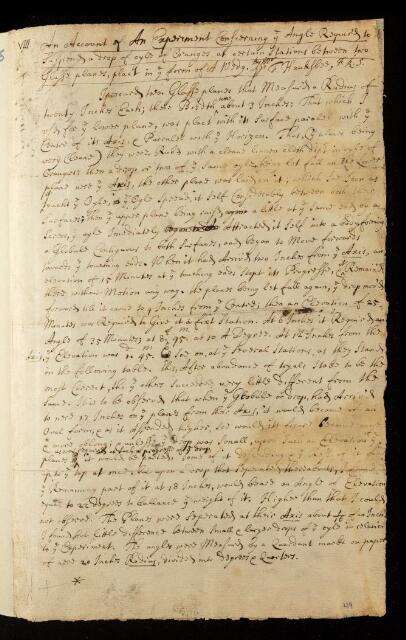 VIII An Account of An Experiment Concerning ye Angle Required to
Suspend a drop of oyle of Oranges at certain Stations between two
Glasse planes, plac't in ye form of A Wedg. by Mr Fr: Hauksbee, F.R.S.
I procured two Glasse planes that Measured a Radius of
twenty Inches Each; their Breadth about 3 Inches: That which I
used for ye lower plane, was plac't with its Surface parallel with ye
Center of its Axis (& Parallel with ye Horizon. That (ye planes being
very cleane) they were Rub'd with a clean linnen cloth dip't in oyle of
Oranges: then a drop or two of ye Same oyle being let fall on ye lower
plane near ye Axis, the other plane was laid on it, which so soon as
toucht ye Oyle, ye Oyle Spread it Self Considerably between both their
Surfaces; then ye upper plane being raised a little at ye Same end by a
Screw, ye oyle Imediately Attracted it Self into a body forming
a Globule Contiguous to both Surfaces, and began to Move forwards
towards ye touching ends. When it had Arrived two Inches from ye Axis, an
elevation of 15 Minutes at ye touching ends Stopt its Progresse, & it Remained
there without Motion any way. The planes being let fall again, ye drop moved
forward till it came to 4 Inches from ye Center; then an Elevation of 25
Minutes was Required to Give it a fixt Station. At 6 Inches it Required an
Angle of 35 Minutes at 8, 45. at 10 A Degree. At 12 Inches from the
Axis, ye Elevation was 1° 45. So on, at ye Several Stations, as they Stand
in the following table. this, After abundance of tryals I take to be the
most Correct, tho ye others Succeeded very little different from the
Same. It is to be observed that when ye Globule or drop, had Arrived
to near 17 Inches on ye planes from their Axis, it would become of an
Oval form; & as it ascended higher, so would its form become
more oblong; & unless ye drop was Small, upon Such an Elevation of ye
planes as it would be parted, Some of it descending, &
up to ye top at once. but upon a drop that Seperated thereabouts,
ye Remaining part of it at 18 Inches, would beare an Angle of Elevation
equal to 22 degrees to ballance ye weight of it. Higher than that I could
not observe. The Planes were Seperated at their Axis about of an Inch.
I found but little difference between Small & larger drops of ye oyle in relation
to ye Experiment. The angles were Measured by a Quadrant marke on paper
of near 20 Inches Radius, divided into degrees & Quarters.
*